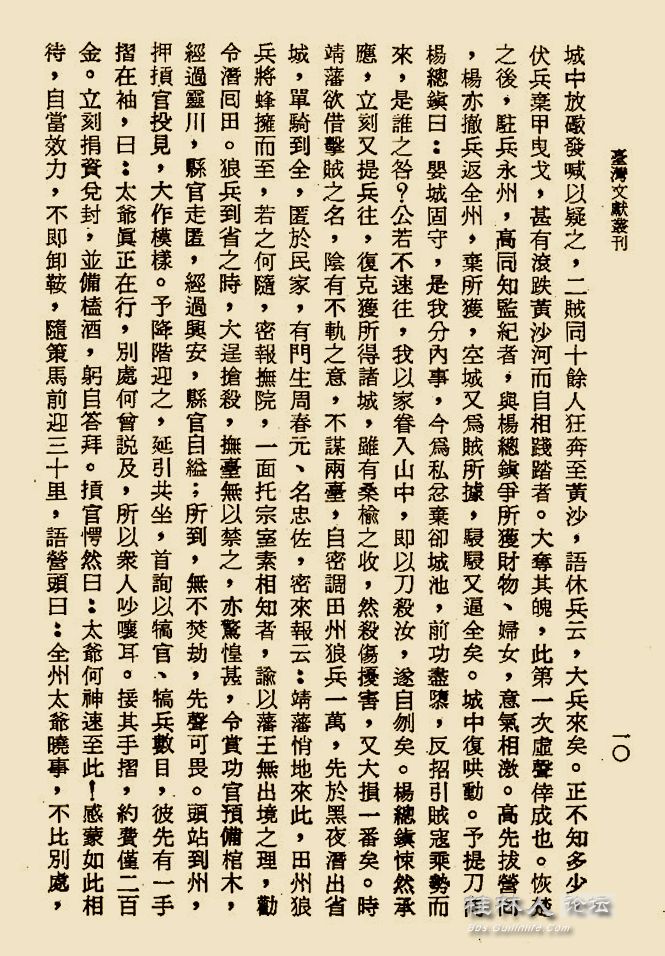 臺灣文獻叢刊
一〇
城中放礮發喊以疑之，二賊同十餘人狂奔至黃沙，語休兵云，大兵來矣。正不知多少
伏兵棄甲曳戈，甚有滾跌黃沙河而自相踐踏者。大奪其魄，此第一次虛聲倖成也。恢楚
之後，駐兵永州，高同知監紀者，與楊總鎮爭所獲財物、婦女，意氣相激。高先拔營
，楊亦撤兵返全州，棄所獲，空城又爲賊所據，駸駸又逼全矣。城中復哄動。予提刀
楊總鎮曰：嬰城固守，是我分內事，今爲私忿棄卻城池，前功盡隳，反招引賊寇乘勢而
來，是誰之咎？公若不速往，我以家眷入山中，即以刀殺汝，遂自刎矣。楊總鎮悚然承
應，立刻又提兵往，復克獲所得諸城，雖有桑榆之收，然殺傷擾害，又大損一番矣。時
靖藩欲借擊賊之名，陰有不軌之意，不謀兩臺，自密調田州狼兵一萬，先於黑夜潛出省
城，單騎到全，匿於民家，有門生周春元、名忠佐，密來報云：靖藩悄地來此，田州狼
兵將蜂擁而至，若之何隨，密報撫院，一面托宗室素相知者，諭以藩王無出境之理，勸
令潛囘田。狼兵到省之時，大逞搶殺，撫臺無以禁之，亦驚惶甚，令賞功官預備棺木，
經過靈川，縣官走匿，經過興安，縣官自縊；所到，無不焚劫，先聲可畏。頭站到州，
押摃官投見，大作模樣。予降階迎之，延引共坐，首詢以犒官、犒兵數目，彼先有一手
摺在袖，曰：太爺眞正在行，別處何曾説及，所以衆人吵嚷耳。接其手摺，約費僅二百
金。立刻捐資兌封，並備榼酒，躬自答拜。摃官愕然曰：太爺何神速至此！感蒙如此相
待，自當效力，不即卸鞍，隨策馬前迎三十里，語營頭曰：全州太爺曉事，不比別處，
桂林人论坛
Bbs.Guilinlife.Com